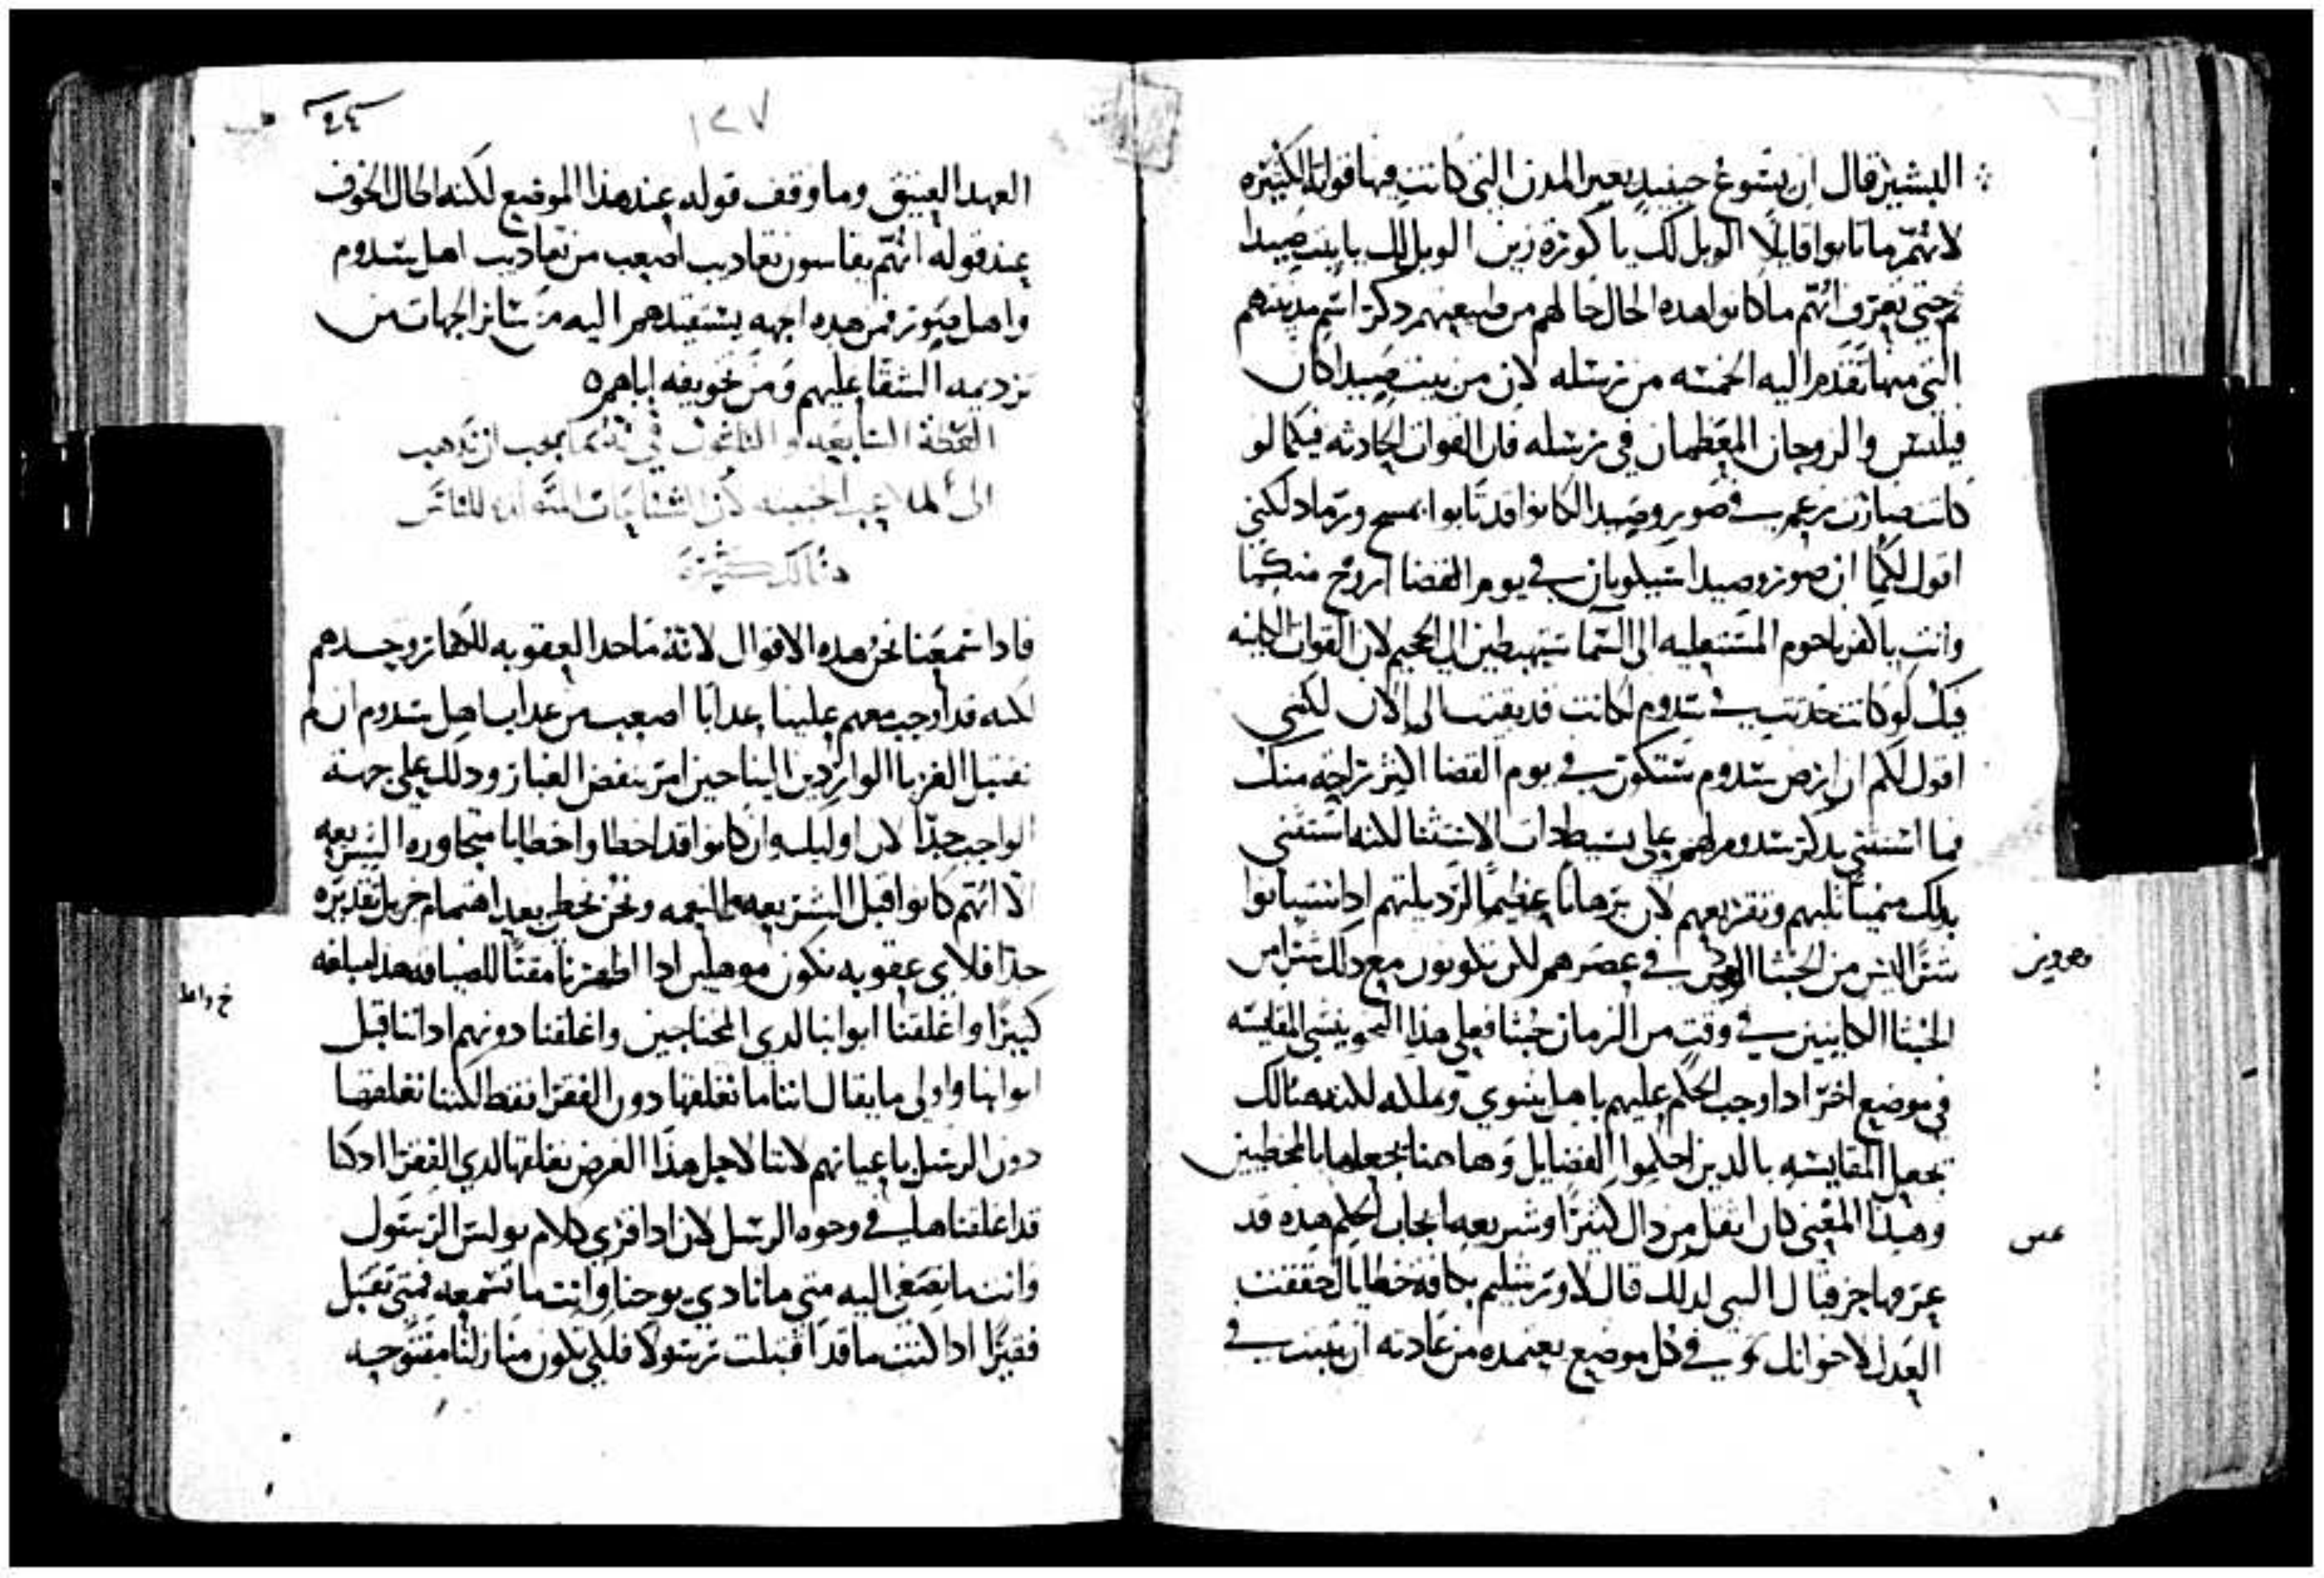 البشير قال ان يسوع حينيد يعير المدن التي كانت فيها قواته الكثيره
لانهم ما تابوا قايلًا الويل لك يا كوزه زين الويل لك يا بيت صيدا
ثم حتى تعرف انهم ما كانوا هده الحال حالهم من طبيعتهم دكر اسم مدينتهم
التي منها تقدم اليه الخمسه من رسله لان من بيت صيدا كان
فيلبس والزوجان المعظمان في رسله فان القوات الحادثه فيكما لو
كانت صارت في صور وصيدا لكانوا قد تابوا بمسح ورماد لكني
اقول لكما ان صور وصيدا سيكونان في يوم القضا اروح منكما
وانت يا كفرناحوم المستعليه الى السما ستهبطين الى الجحيم لان القوات الكاينه
فيك لو كانت حدثت في سدوم لكانت قد بقيت الى الان لكني
اقول لكم ان ارض سدوم ستكون في يوم القضا اكثر راحه منك
فما استثنى بدكر سدوم لهم على بسيط دات الاستثنا لكنه استثنى
بدلك منميًا ثلبهم وتقريعهم لان برهانًا عظيمًا لرديلتهم ادا استبانوا
شرًا ليس من الخبثا في عصرهم لكن يكونون مع دلك شرًا من
الخبثا الكاينين في وقت من الزمان خبثا فعلى هذا النحو ينشي المقايسه
في موضع اخر ادا وجب الحكم عليهم باهل نينوي وبملكه لكنه هنالك
جعل المقايسه بالدين احكموا الفضايل وها هنا يجعلها بالمخطيين
وهدا المعنى كان اثقل من داك كثيرًا وشريعه ايجاب الحكم هده قد
عرفها حزقيال النبي لدلك قال لاورشليم بكافة خطاياك حققت
العدل لاخواتك في كل موضع يعتمده من عادته ان يثبت في
وهو وين
عس
١٢٧
العهد العتيق وما وقف قوله عند هذا الموضع لكنه احال الخوف
عند قوله انهم يقاسون تعاديب اصعب من تعاديب اهل سدوم
واهل صور فمن هده الجهه يستفيدهم اليه من ساير الجهات من
ترديمه الشقا عليهم ومن تخويفه اياهم ه
العظة السابعه والثلاثون في انه ما يجب ان تذهب
الى الملاعب الخبيثه لان الشنايات للناس
هنالك كثيرة
فادا سمعنا نحن هده الاقوال لانه ما حدا العقوبه للكفار وحدهم
لكنه قد اوجب معهم علينا عدابًا اصعب من عداب اهل سدوم ان لم
نقتبل الغربا الواردين الينا حين امر بنفض الغبار ودلك على جهة
الواجب جدًا لان اوليك وان كانوا قد اخطاوا خطايا متجاوره الشريعه
الا انهم كانوا قبل الشريعه والنعمه ونحن نخطي بعد اهتمام جزيل تقديره
جدًا فلاي عقوبه نكون موهلين ادا اظهرنا مقتًا للضيافه هدا مبلغه
كبيرًا واغلقنا ابوابنا لدى المحتاجين واغلقنا دونهم اداننا قبل
ابوابنا واولى ما يقال اننا ما نغلقها دون الفقرا فقط لكننا نغلقها
دون الرسل باعيانهم لاننا لاجل هذا الغرض نغلقها لدى الفقرا اد كنا
قد اغلقناها في وجوه الرسل لان ادا قري كلام بولس الرسول
وانت ما تصغي اليه متى ما نادى يوحنا وانت ما تسمعه فمتى تقبل
فقيرًا ادا كنت ما قد اقتبلت رسولًا فلكي تكون منازلنا مفتوحه